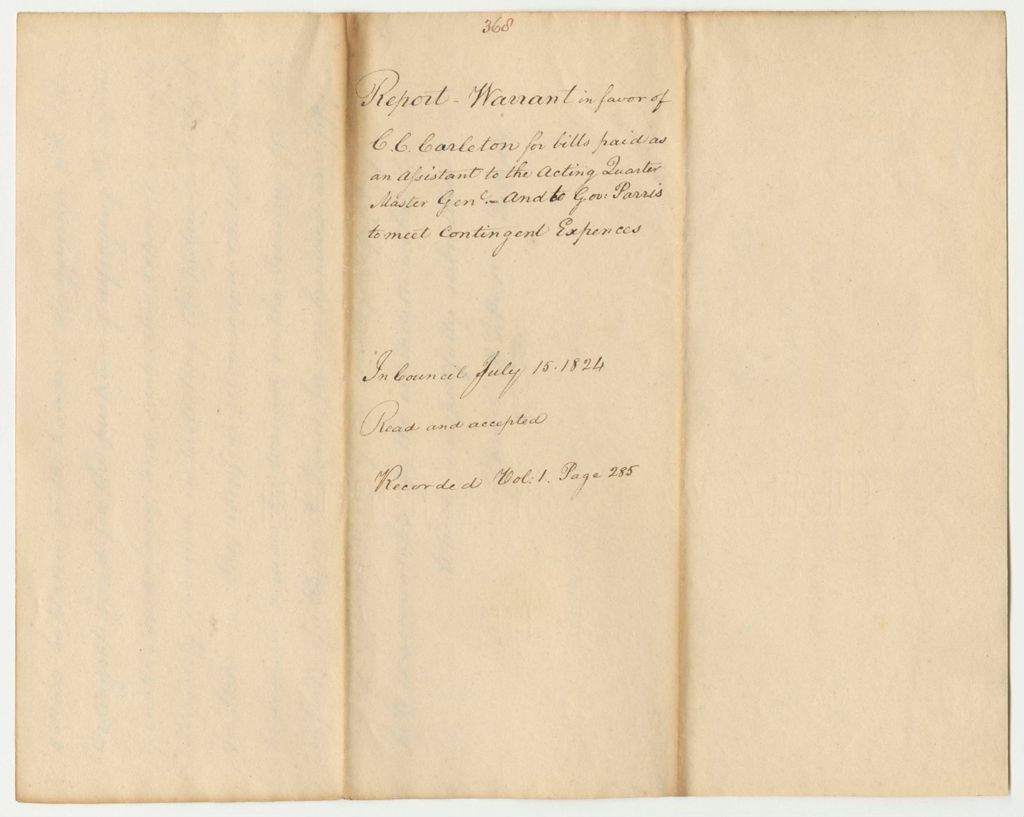 368
Report - Warrant in favor of
C. C. Carleton for bills paid as
an assistant to the Acting Quarter
Master Genl. - And to Gov: Parris
to meet Contingent Expences
In Council July 15. 1824
Read and accepted
Recorded Vol: 1. Page 285